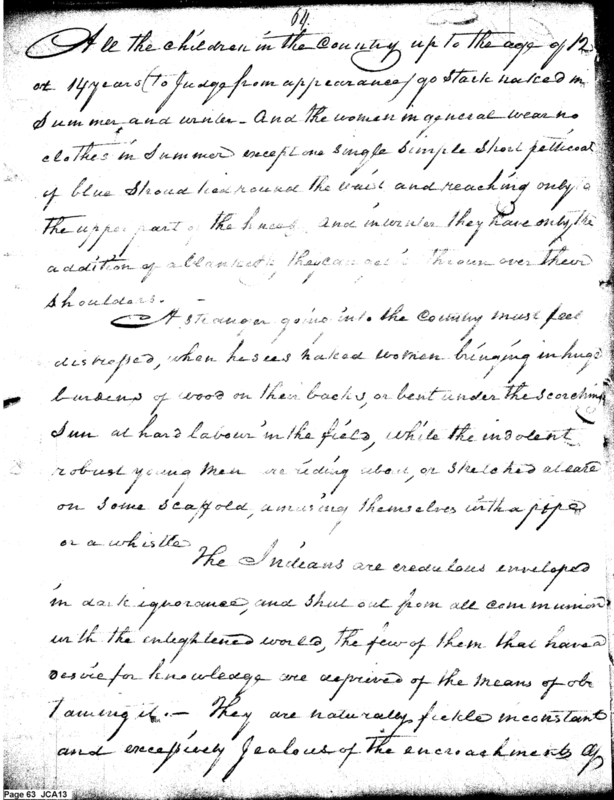 64.
All the children in the country up to the age of 12
or 14 years (to Judge from appearance) go stark naked in
Summer and winter - And the women in general wear no
clothes in Summer except one single simple short petticoat
of blue Stroud tied round the waist and reaching only
the upper part of the knees and in winter they have only the
addition of a blanket if they can get it thrown over their
shoulders. -
A stranger going into the Country must feel
distressed, when he sees naked women bringing in huge
burdens of wood on their backs, or bent under the scorching
Sun at hard labour in the field, while the indolent
robust young men are riding about, or stretched at ease
on some scaffold, amusing themselves with a pipe
or a whistle
The Indians are credulous enveloped
in dark ignorance, and shut out from all communion
with the enlightened world, the few of them that have a
desire for knowledge are deprived of the means of ob
taining it. - They are naturally fickle inconstant
and excessively Jealous of the encroachments of
Page 63 JCA13